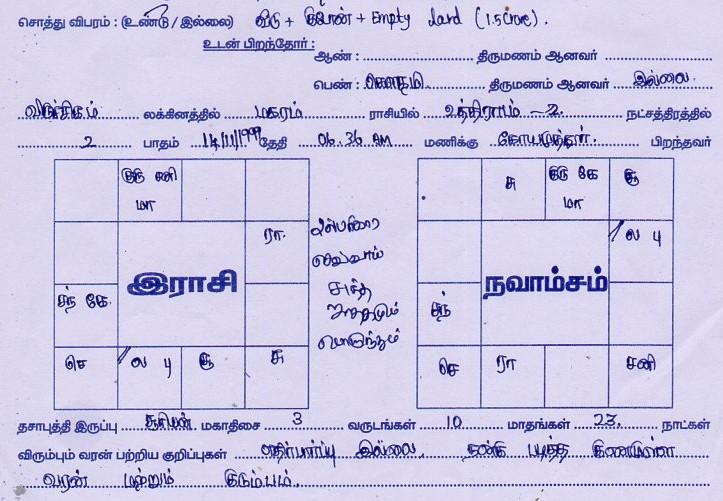 சொத்து விபரம் : (உண்டு / இல்லை) வீடு + + Empty land (1.5 Crore).
உடன் பிறந்தோர் :
ஆண் : திருமணம் ஆனவர்
பெண் : கௌதமி திருமணம் ஆனவர் இல்லை
விருச்சிகம் லக்கினத்தில் மகரம் ராசியில் உத்திராடம் - 2 நட்சத்திரத்தில்
2 பாதம் 14/11/1999 தேதி 06.36 AM மணிக்கு கோயமுத்தூர். பிறந்தவர்
குரு சனி
மா
ரா.
சந் கே.
செ
ல பு
சூ
சு
இராசி
செவ்வாய்
சுத்த
சு
குரு கே
மா
சூ
ல பு
சந்
செ
ரா
சனி
நவாம்சம்
தசாபுத்தி இருப்பு சூரியன் மகாதிசை 3 வருடங்கள் 10 மாதங்கள் 23. நாட்கள்
விரும்பும் வரன் பற்றிய குறிப்புகள் எதிர்பார்ப்பு இல்லை. நன்கு படித்த குணமுள்ள
வரன் மற்றும் குடும்பம்.